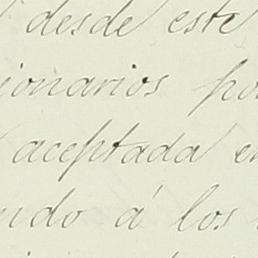 desde este
ionarios po
aceptada en
ndo á los